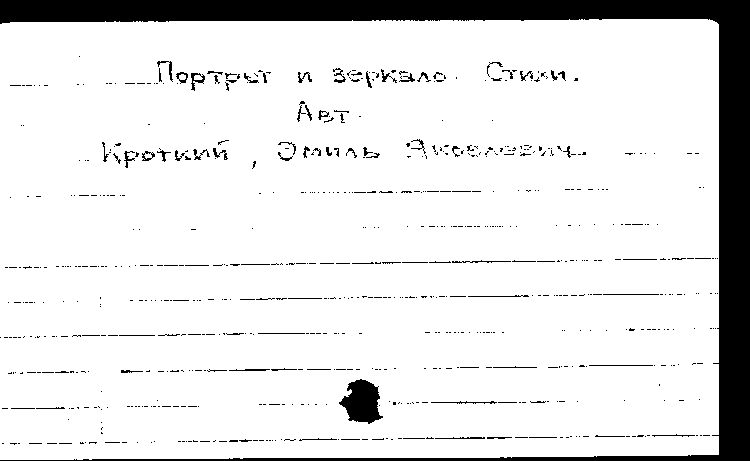 Портрет и зеркало. Стихи.
Авт.
Кроткий, Эмиль Яковлевич.